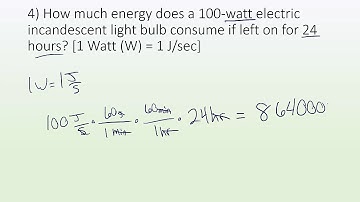 4) How much energy does a 100-watt electric
incandescent light bulb consume if left on for 24
hours? [1 Watt (W) = 1 J/sec]
1W = 1 J/s
100 J/s · 60s/1 min · 60min/1hr · 24hr = 864000